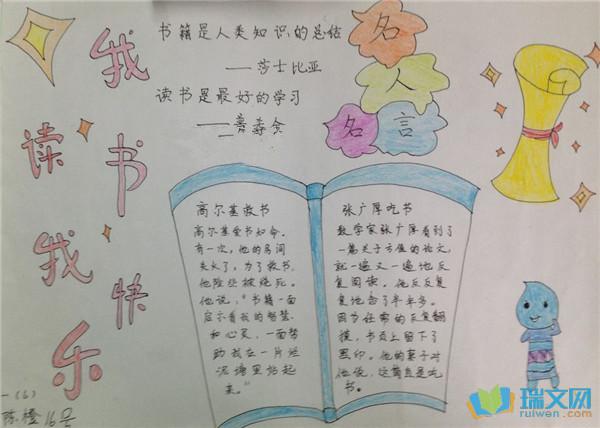 我读书
我快乐
书籍是人类知识的总结
——莎士比亚
读书是最好的学习
名
人
名
言
高尔基救书
高尔基爱书如命。
有一次，他的房间
失火了，为了救书，
他险些被烧死。
他说，“书籍一面
启示着我的智慧
和心灵，一面帮
助我在一片烂
泥塘里站起
来。”
张广厚吃书
数学家张广厚看到了
一篇关于亏值的论文，
就一遍又一遍地反
复阅读。他反反复
复地念了半年多。
因为经常的反复翻
摸，书页上留下了
黑印。他的妻子对
他说，这简直是吃
书。
一（6）
陈橙 16号
瑞文网
ruiwen.com